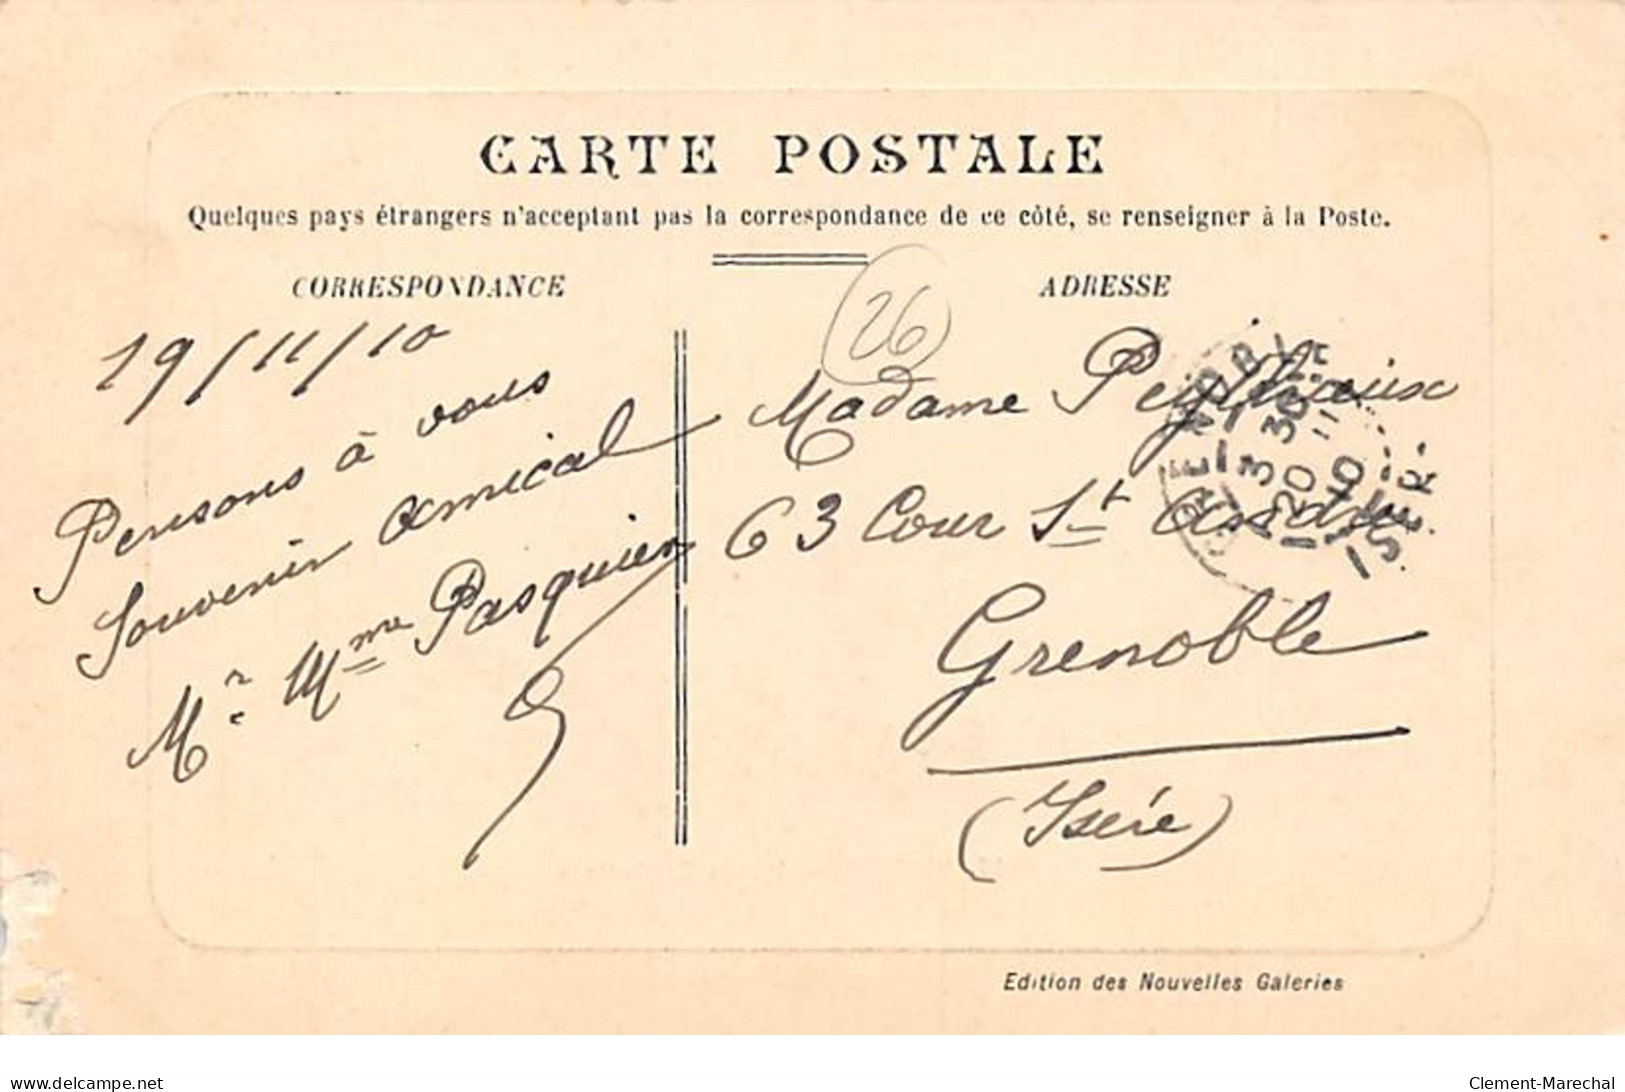 CARTE POSTALE
Quelques pays étrangers n'acceptant pas la correspondance de ce côté, se renseigner à la Poste.
CORRESPONDANCE
19/11/10
Pensons à vous
Souvenir amical
Mr Mme Pasquier
ADRESSE
26
Madame
63 Cour St André
Grenoble
(Isère)
GRENOBLE
3 30
20 11
10
ISÈRE
Edition des Nouvelles Galeries
delcampe.net
Clement-Marechal